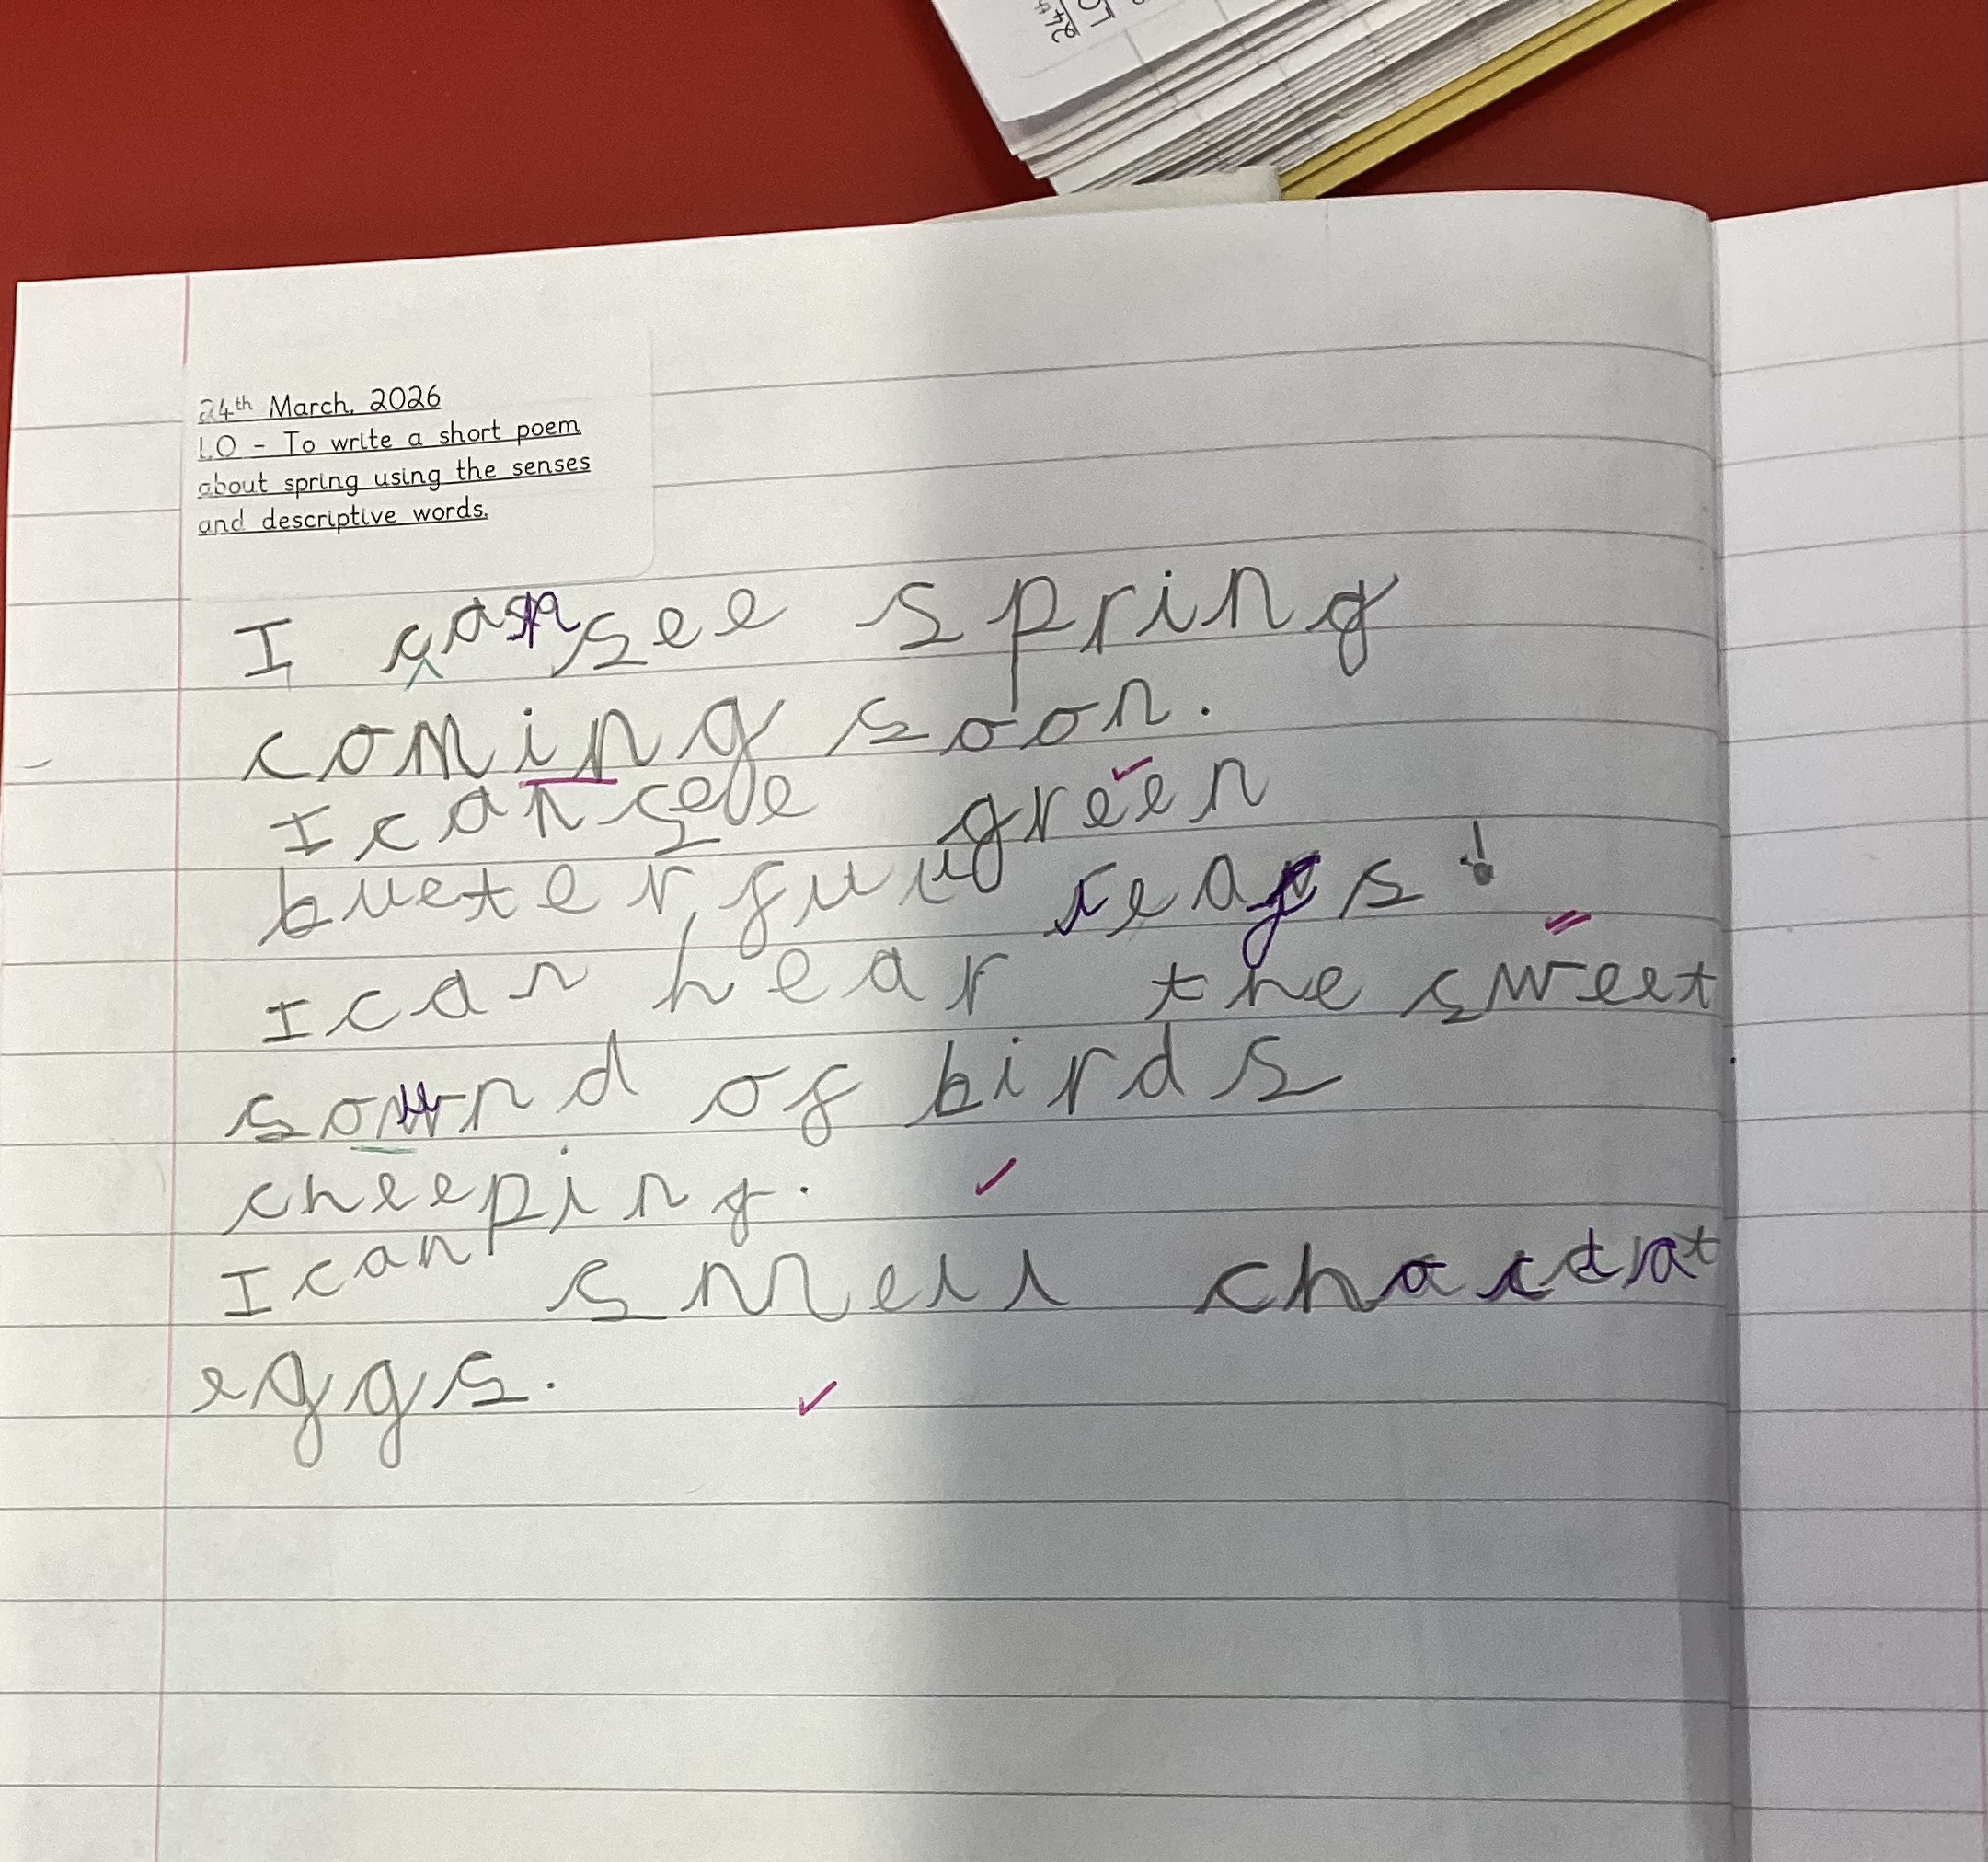 24
LO
24th March, 2026
LO - To write a short poem
about spring using the senses
and descriptive words.
I can see spring
coming soon.
I can see green
leafs!
I can hear the sweet
sound of birds
cheeping.
I can smell
eggs.